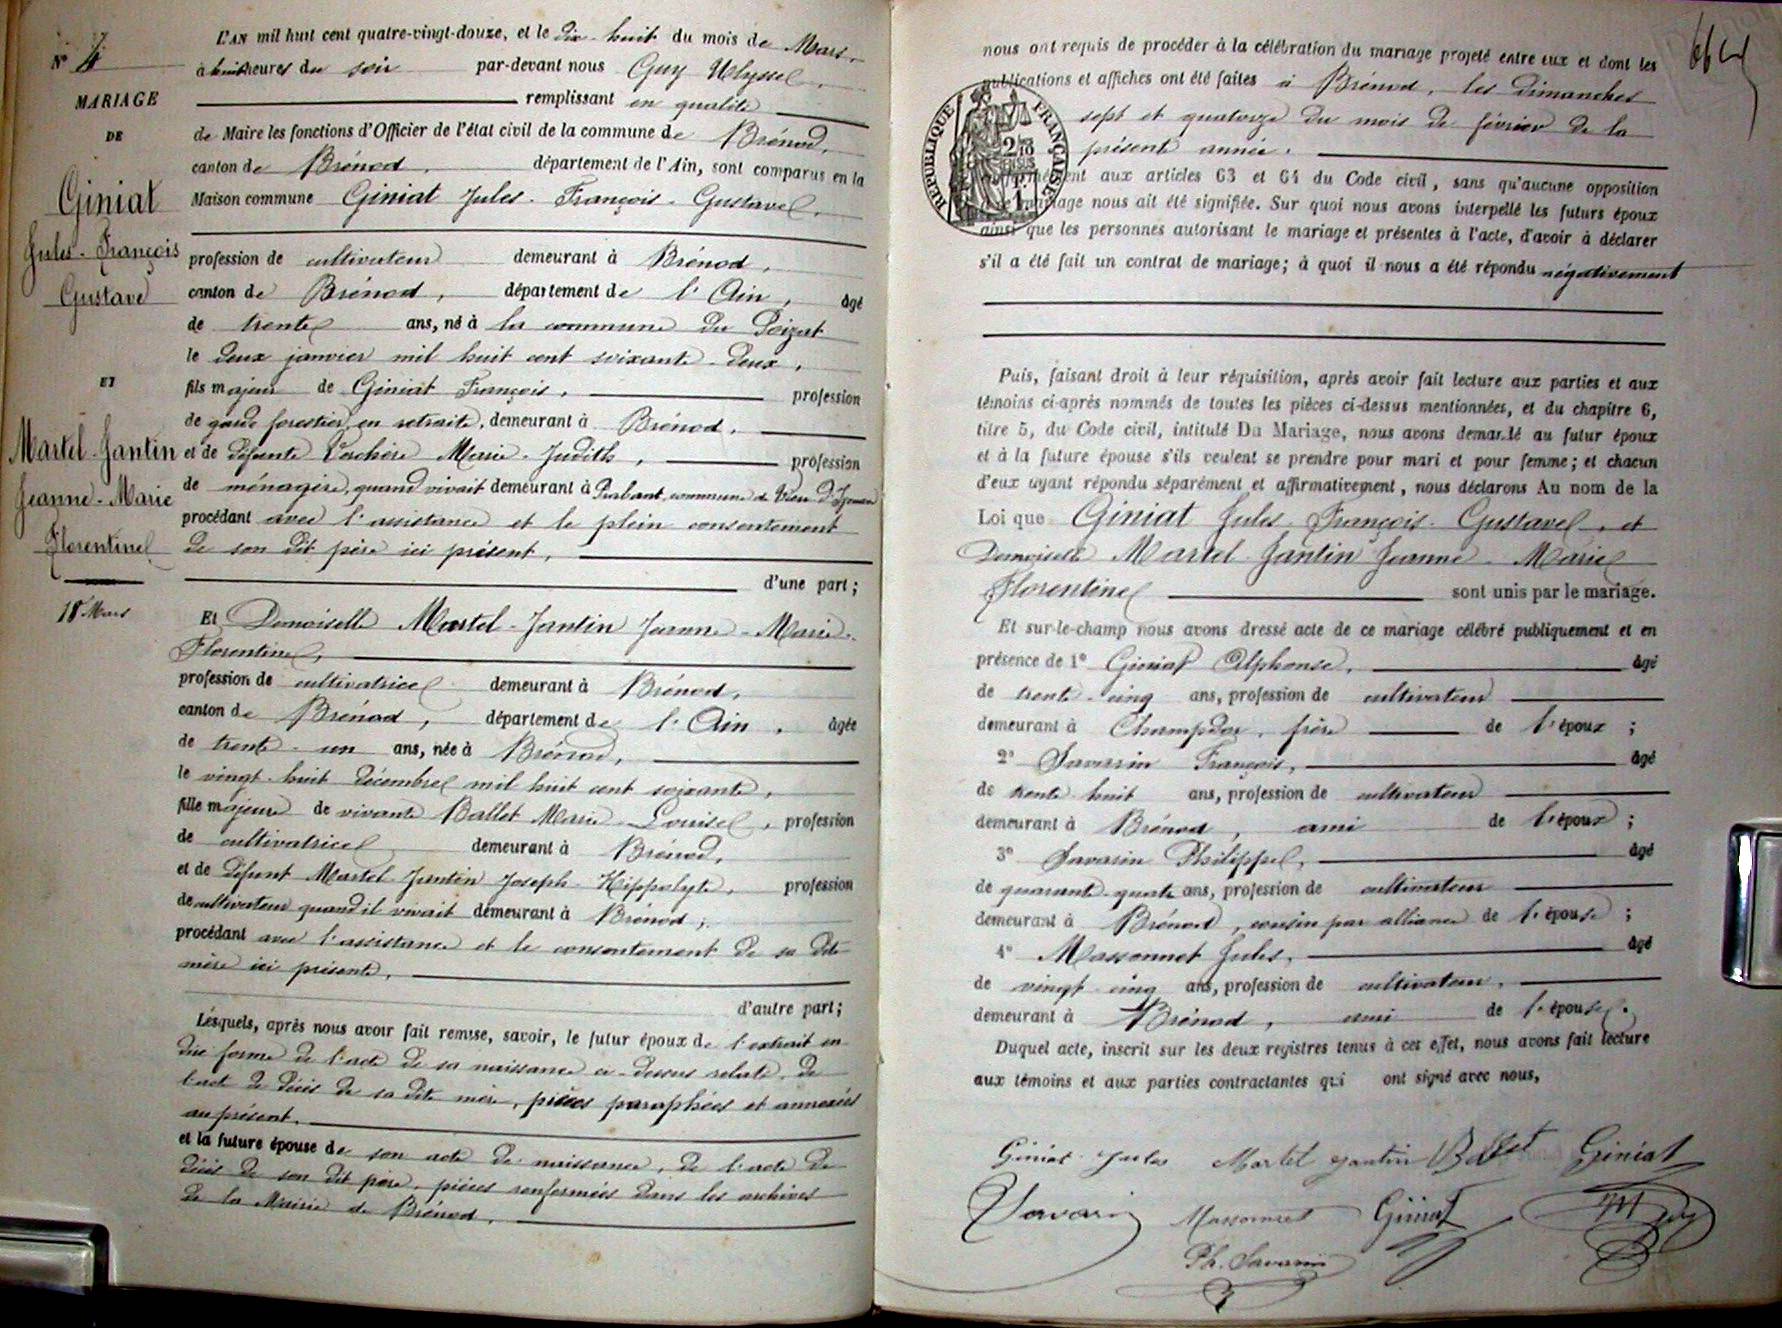 N° 4
MARIAGE
DE
Giniat
Jules-François
Gustave
ET
Martel-Jantin
Jeanne-Marie
Florentine
18 Mars
L'AN mil huit cent quatre-vingt-douze, et le dix-huit du mois de Mars,
à huit heures du soir par-devant nous Guy Ulysse,
remplissant en qualité
de Maire les fonctions d'Officier de l'état civil de la commune de Brénod,
canton de Brénod, département de l'Ain, sont comparus en la
Maison commune Giniat Jules-François-Gustave,
profession de cultivateur demeurant à Brénod,
canton de Brénod, département de l'Ain, âgé
de trente ans, né à la commune du Poizat
le deux janvier mil huit cent soixante-deux,
fils majeur de Giniat François, profession
de garde forestier en retraite, demeurant à Brénod,
et de défunte Verchère Marie-Judith, profession
de ménagère, quand vivait demeurant à commune de Vieu-d'Izenave
procédant avec l'assistance et le plein consentement
de son dit père ici présent,
d'une part;
Et Demoiselle Martel-Jantin Jeanne-Marie-
Florentine,
profession de cultivatrice demeurant à Brénod,
canton de Brénod, département de l'Ain, âgée
de trente-un ans, née à Brénod,
le vingt-huit décembre mil huit cent soixante,
fille majeure de vivante Ballet Marie-Louise, profession
de cultivatrice demeurant à Brénod,
et de défunt Martel-Jantin Joseph-Hippolyte, profession
de cultivateur quand il vivait demeurant à Brénod;
procédant avec l'assistance et le consentement de sa dite
mère ici présente,
d'autre part;
Lesquels, après nous avoir fait remise, savoir, le futur époux de l'extrait en
due forme de l'acte de sa naissance ci-dessus relaté, de
l'acte de décès de sa dite mère, pièces paraphées et annexées
au présent,
et la future épouse de son acte de naissance, de l'acte de
décès de son dit père, pièces renfermées dans les archives
de la Mairie de Brénod,
nous ont requis de procéder à la célébration du mariage projeté entre eux et dont les
publications et affiches ont été faites à Brénod, les dimanches
sept et quatorze du mois de février de la
présente année,
RÉPUBLIQUE FRANÇAISE
conformément aux articles 63 et 64 du Code civil, sans qu'aucune opposition
mariage nous ait été signifiée. Sur quoi nous avons interpellé les futurs époux
ainsi que les personnes autorisant le mariage et présentes à l'acte, d'avoir à déclarer
s'il a été fait un contrat de mariage; à quoi il nous a été répondu négativement
Puis, faisant droit à leur réquisition, après avoir fait lecture aux parties et aux
témoins ci-après nommés de toutes les pièces ci-dessus mentionnées, et du chapitre 6,
titre 5, du Code civil, intitulé Du Mariage, nous avons demandé au futur époux
et à la future épouse s'ils veulent se prendre pour mari et pour femme; et chacun
d'eux ayant répondu séparément et affirmativement, nous déclarons Au nom de la
Loi que Giniat Jules-François-Gustave, et
Demoiselle Martel-Jantin Jeanne-Marie
Florentine sont unis par le mariage.
Et sur-le-champ nous avons dressé acte de ce mariage célébré publiquement et en
présence de 1° Giniat Alphonse, âgé
de trente-cinq ans, profession de cultivateur
demeurant à Champdor, frère de l'époux;
2° Savarin François, âgé
de trente-huit ans, profession de cultivateur
demeurant à Brénod, ami de l'époux;
3° Savarin Philippe, âgé
de quarante-quatre ans, profession de cultivateur
demeurant à Brénod, cousin par alliance de l'épouse;
4° Massonnet Jules, âgé
de vingt-cinq ans, profession de cultivateur,
demeurant à Brénod, ami de l'épouse.
Duquel acte, inscrit sur les deux registres tenus à cet effet, nous avons fait lecture
aux témoins et aux parties contractantes qui ont signé avec nous,
Giniat Jules Martel Jantin Ballet Giniat
Savarin Massonnet Giniat Guy
Ph. Savarin